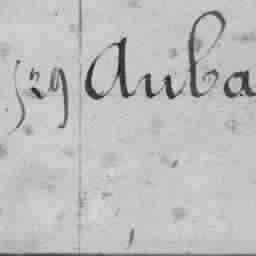 529 Auba